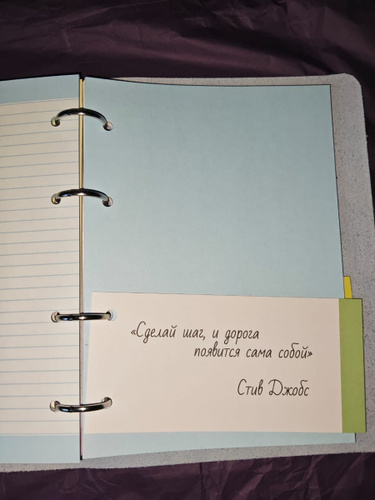 «Сделай шаг, и дорога
появится сама собой»
Стив Джобс